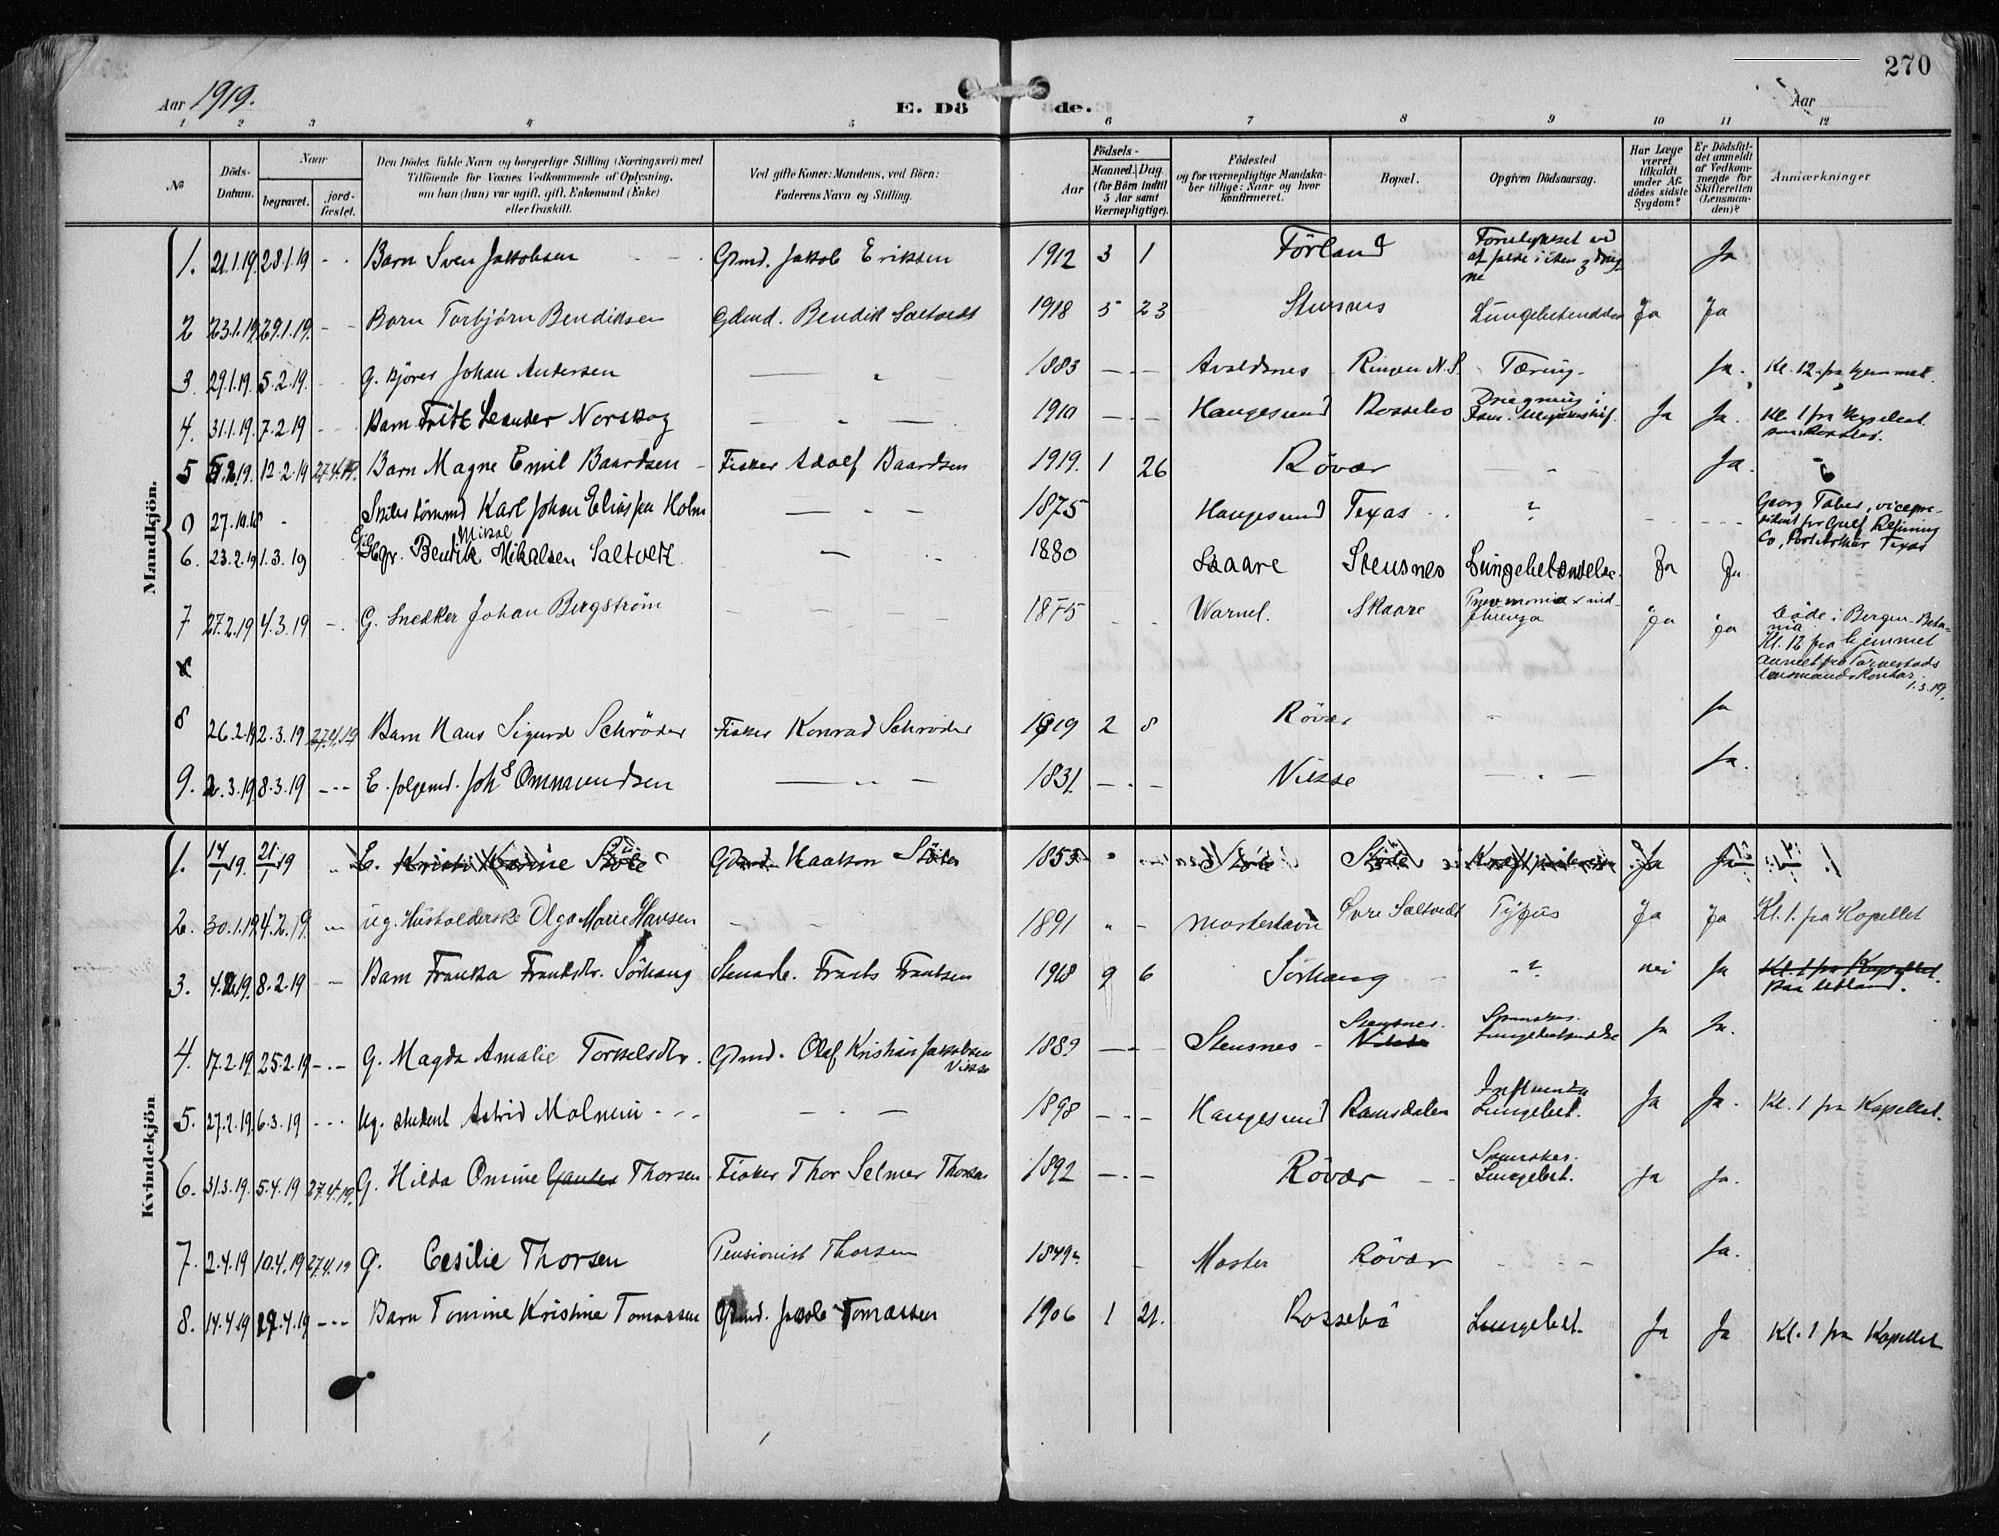 270
Aar 1919. E. Dö de. Aar
1 2 3 4 5 6 7 8 9 10 11 12
No
Döds-
Datum.
Naar
begravet.
jord-
fæstet.
Den Dödes fulde Navn og borgerlige Stilling (Næringsvei) med
Tilföiende for Voxnes Vedkommende af Oplysning,
om han (hun) var ugift, gift, Enkemand (Enke)
eller fraskilt.
Ved gifte Koner: Mandens, ved Börn:
Faderens Navn og Stilling.
Födsels-
Aar
Maaned. Dag
(for Börn indtil
5 Aar samt
Værnepligtige).
Födested
og for værnepligtige Mandska-
ber tillige: Naar og hvor
konfirmeret.
Bopæl.
Opgiven Dödsaarsag.
Har Læge
været
tilkaldt
under Af-
dödes sidste
Sygdom?
Er Dödsfal-
det anmeldt
af Vedkom-
mende for
Skifteretten
(Lensman-
den)?
Anmærkninger
Mandkjön.
1. 21.1.19. 28.1.19 - - Barn Sven Jakobsen Gbrmd. Jakob Eriksen 1912 3 1 Förland Ja
2 23.1.19. 29.1.19. - - Barn Torbjörn Bendiksen Gbrmd. Bendik Saltvedt 1918 5 23 Stensnes Lungebetendelse Ja Ja
3. 29.1.19. 5.2.19. G. Johan Andersen 1883 Avaldsnes Ringen N.S. Tæring Ja. Kl. 12 fra hjemmet.
4. 31.1.19. 7.2.19 Barn Fritz Leander Norskog 1910 Haugesund Rossebö Ja Ja. Kl. 1 fra Kapellet
5 12.2.19 27.4.19. Barn Magne Emil Baardsen Fisker Adolf Baardsen 1919. 1 26 Röver Ja.
27.10.18 Karl Johan Eliassen Holm 1875 Haugesund Texas ? Georg Taber, vicepre-
sident for Gulf Refining
Co, Port Arthur Texas
6. 23.2.19 1.3.19 Bendik Mikal Nikolsen Saltvedt 1880 Skaare Stensnes Lungebetændelse. Ja Ja
7 27.2.19 4.3.19 G. Snedker Johan Bergström 1875 Skaare Ja Ja Döde i Bergen
Kl. 12 fra hjemmet
Anmeldt fra Torvestads
lensmandskontor 1.3.19.
8 26.2.19 2.3.19 27.4.19 Barn Hans Sigurd Schröder Fisker Konrad Schröder 1919 2 8 Röver Ja
9. 2.3.19 8.3.19 --- E. folgemd. Johs Ommundsen 1831. Vikse Ja.
Kvindekjön
1. 14/1 19. 21/1 19 E. Gbrmd. Haakon 1853 Ja Ja
2. 30.1.19 4.2.19. ug. Husholderske Olga Marie Hansen 1891 Mosterhavn Övre Saltvedt Tyfus Ja Ja Kl. 1. fra Kapellet
3. 8.2.19 Barn Franka Sörhaug Stenarb. Frants Frantsen 1918 9 6 Sörhaug ? nei Ja Kl. 1 fra Kapellet.
Paa Utland.
4. 17.2.19. 25.2.19 G. Magda Amalie Torkelsdtr. Gbrmd. Olaf Kristian Jakobsen
Vikse 1889 Stensnes Stensnes Lungebetændelse Ja Ja.
5. 27.2.19 6.3.19 - - - Ug. student Astrid Malmin 1898 Haugesund Ramsdalen Influentsa
Lungebet. Ja Ja. Kl. 1 fra Kapellet.
6. 31.3.19. 5.4.19 27.4.19. G. Hilda Omine Thorsen Fisker Thor Selmer Thorsen 1892 Röver Spanskes.
Lungebet. Ja Ja.
7. 2.4.19 10.4.19 27.4.19 G. Cesilie Thorsen Pensionist Thorsen 1849 Moster Röver Ja.
8. 14.4.19 --- Barn Tomine Kristine Tomassen Gbrmd. Jakob Tomassen 1906 1 21. Rossebö Lungebet. Ja Ja Kl. 1 fra Kapellet